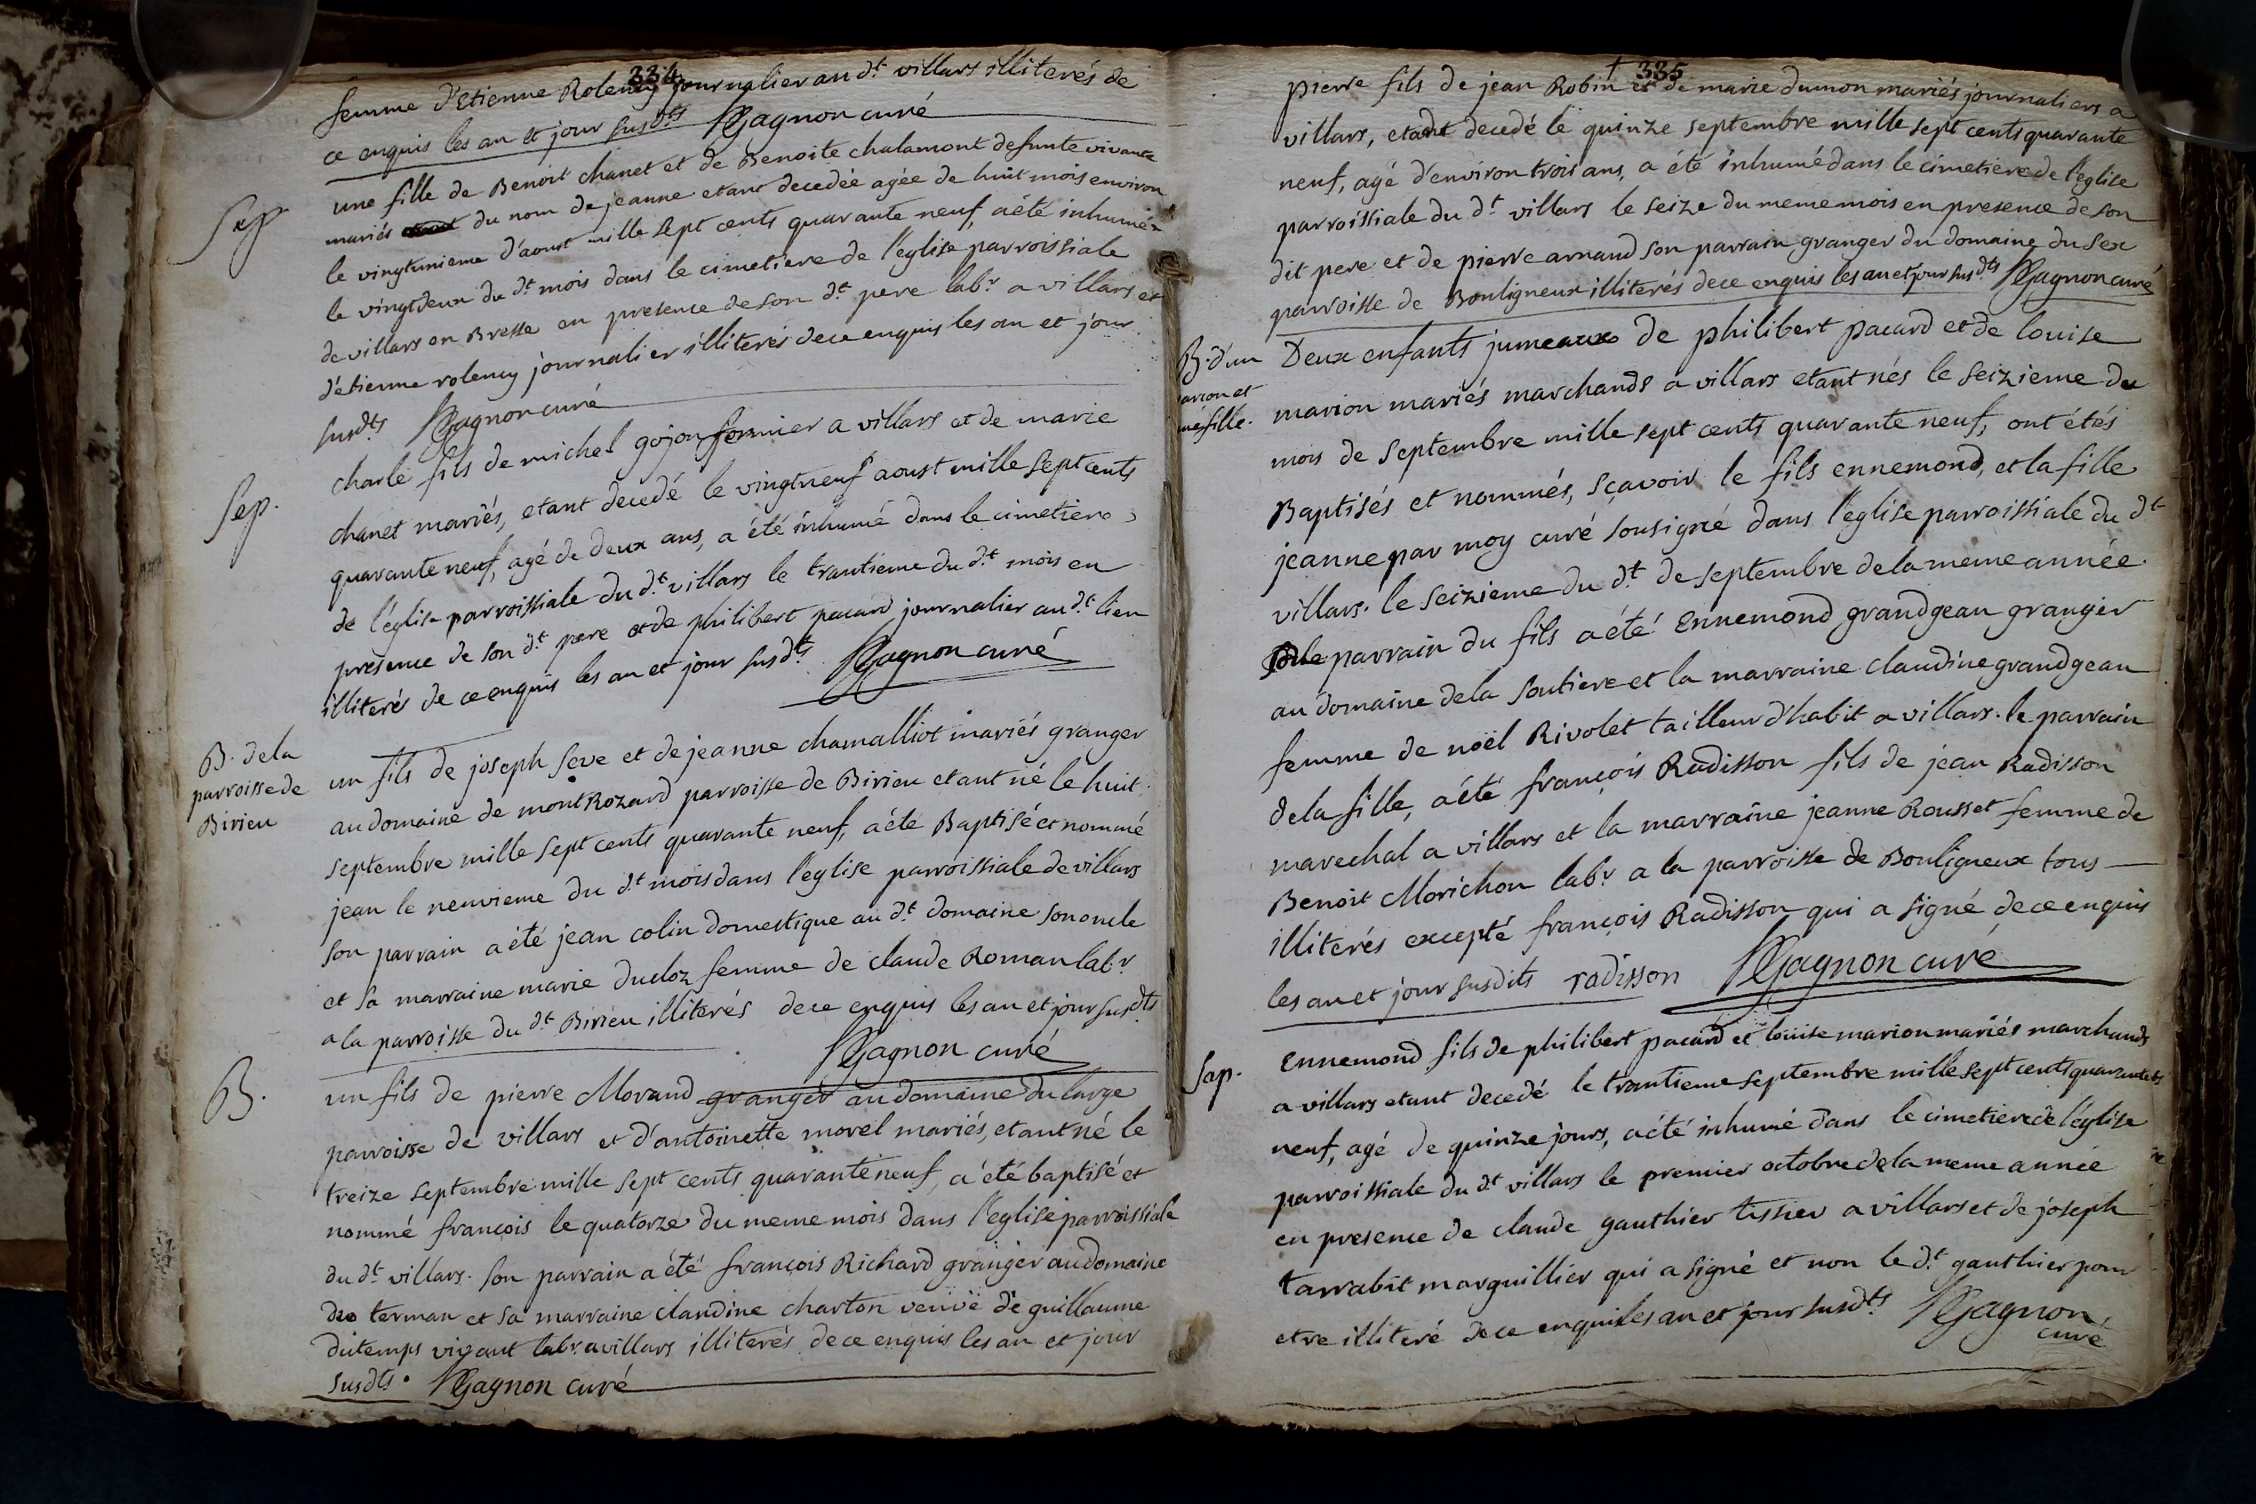 334
femme d'Etienne Rolency journalier au d.t villars illiterés de
ce enquis les an et jour susd.ts Gagnon curé
Sep
une fille de Benoit chanet et de Benoite chalamont defunte vivante
mariés du nom de jeanne etant decedée agée de huit mois environ
le vingtunieme d'aoust mille sept cents quarante neuf, a été inhumée
le vingtdeux du d.t mois dans le cimetiere de l'église parroissiale
de villars en Bresse en presence de son d.t pere lab.r a villars et
d'étienne rolency journalier illiterés de ce enquis les an et jour
susd.ts Gagnon curé
Sep.
charle fils de michel gojon fermier a villars et de marie
chanet mariés, etant decedé le vingtneuf aoust mille sept cents
quarante neuf, agé de deux ans, a été inhumé dans le cimetiere
de l'église parroissiale du d.t villars le trantieme du d.t mois en
presence de son d.t pere et de philibert pacard journalier au d.t lieu
illiterés de ce enquis les an et jour susd.ts Gagnon curé
B. de la
parroisse de
Birieu
un fils de joseph seve et de jeanne chamalliot mariés granger
au domaine de montRozard parroisse de Birieu etant né le huit
septembre mille sept cents quarante neuf, a été Baptisé et nommé
jean le neuvieme du d.t mois dans l'eglise parroissiale de villars
son parrain a été jean colin domestique au d.t domaine son oncle
et sa marraine marie ducloz femme de claude Roman lab.r
a la parroisse du d.t Birieu illiterés de ce enquis les an et jour susd.ts
Gagnon curé
B.
un fils de pierre Morand granger au domaine du large
parroisse de villars et d'antoinette morel mariés, etant né le
treize septembre mille sept cents quarante neuf, a été baptisé et
nommé françois le quatorze du meme mois dans l'eglise parroissiale
du d.t villars. son parrain a été françois Richard granger au domaine
du terman et sa marraine claudine charton veuve de guillaume
dutemps vivant lab.r a villars illiterés de ce enquis les an et jour
susd.ts. Gagnon curé
335
pierre fils de jean Robin et de marie dumon mariés journaliers a
villars, etant decedé le quinze septembre mille sept cents quarante
neuf, agé d'environ trois ans, a été inhumé dans le cimetiere de l'église
parroissiale du d.t villars le seize du meme mois en presence de son
dit pere et de pierre arnaud son parrain granger du domaine du sex
parroisse de Bouligneux illiterés de ce enquis les an et jour susd.ts Gagnon curé
B. d'un
arcon et
une fille.
Deux enfants jumeaux de philibert pacard et de louise
marion mariés marchands a villars etant nés le seizieme du
mois de septembre mille sept cents quarante neuf, ont étés
Baptisés et nommés, sçavoir le fils ennemond, et la fille
jeanne par moy curé sousigné dans l'eglise parroissiale du d.t
villars. le seizieme du d.t de septembre de la meme année.
le parrain du fils a été Ennemond grandgean granger
au domaine de la soutiere et la marraine claudine grandgean
femme de noël Rivolet tailleur d'habit a villars. le parrain
de la fille, a été françois Radisson fils de jean Radisson
marechal a villars et la marraine jeanne Rousset femme de
Benoit Morichon lab.r a la parroisse de Bouligneux tous
illiterés excepté françois Radisson qui a signé de ce enquis
les an et jour susdits radisson Gagnon curé
Sep.
Ennemond fils de philibert pacard et louise marion mariés marchands
a villars etant decedé le trantieme septembre mille sept cents quarante
neuf, agé de quinze jours, a été inhumé dans le cimetiere de l'église
parroissiale du d.t villars le premier octobre de la meme année
en presence de claude gauthier tissier a villars et de joseph
tarrabit marguillier qui a signé et non le d.t gauthier pour
etre illiteré de ce enquis les an et jour susd.ts Gagnon
curé